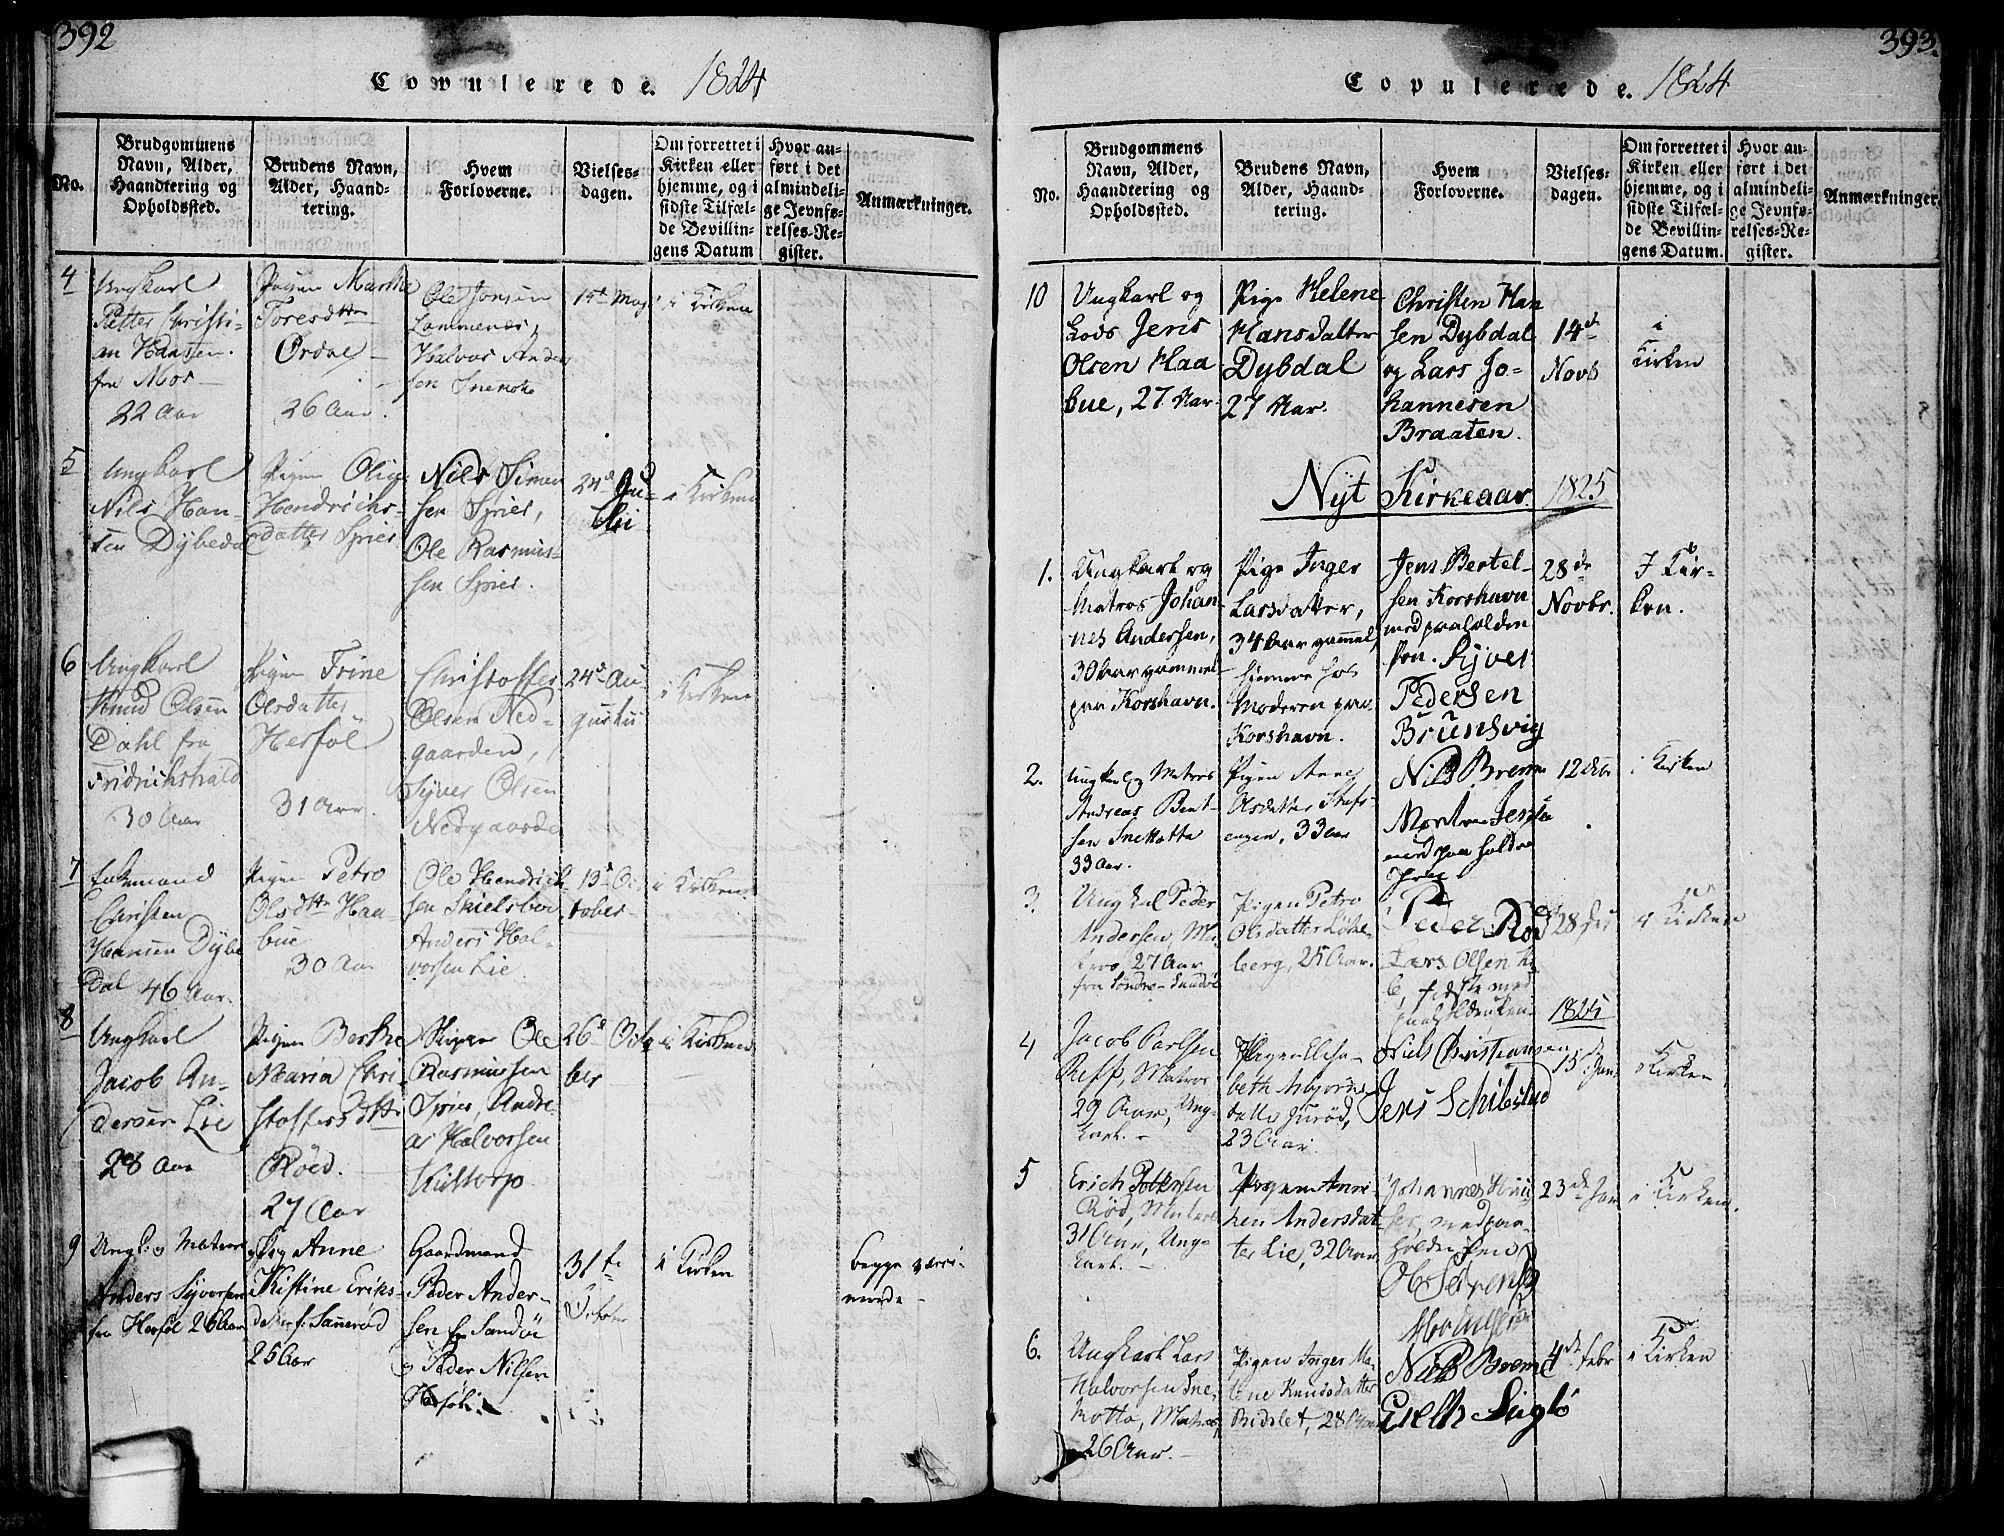 392
Copulerede. 1824
No.
Brudgommens
Navn, Alder,
Haandtering og
Opholdssted.
Brudens Navn,
Alder, Haand-
tering.
Hvem
Forloverne.
Vielses-
dagen.
Om forrettet i
Kirken eller
hjemme, og i
sidste Tilfæl-
de Bevillin-
gens Datum
Hvor an-
ført i det
almindeli-
ge Jevnfø-
relses-Re-
gister.
Anmærkninger.
4
Ungkarl
Petter Christi-
an Hansen
fra Mos
22 Aar
Pigen Marthe
Toresdttr
Ordal
26 Aar.
Ole Jonsen
Halvor Ander
sen
15d May
i Kirken
5
Ungkarl
Nils Han-
sen Dybeda
Pigen
Hendrichs-
datter Spier
Nils Simon
sen Spier,
Ole Rasmus-
sen Spier.
24d Ju-
lii
i Kirken
6
Ungkarl
Knud Olsen
Dahl fra
Fridrichshald
30 Aar
Pigen Trine
Olsdatter
Herföl
31 Aar.
Christoffer
Olsen Ned-
gaarden,
Syver Olsen
Nedgaarde
24d Au-
gustii
i Kirken
7
Enkemand
Christen
Hansen Dybe
dal 46 Aar.
Pigen Petro
Olsdttr Haa
bue
30 Aar
Ole Hendrich
sen
Anders Hal-
vorsen Lie
13d Oc
tober
i Kirken
8
Ungkarl
Jacob An-
dersen Lie
28 Aar
Pigen Berthe
Maria Chri-
stoffersdttr
Röed.
27 Aar
Ole
Rasmussen
Spier, Andre
as Halvorsen
26d Octo
ber
i Kirken
9
Ungk. og Matros
Anders Syvorsen
fra Herföl 26 Aar
Pig Anne
Kristine Eriks-
datter f. Sanneröd
25 Aar
Gaardmand
Peder Ander-
sen fra Sandöe
og Peder Nilsen
31te
October
i Kirken
begge vacci-
nerede
393.
Copulerede. 1824
No.
Brudgommens
Navn, Alder,
Haandtering og
Opholdssted.
Brudens Navn,
Alder, Haand-
tering.
Hvem
Forloverne.
Vielses-
dagen.
Om forrettet i
Kirken eller
hjemme, og i
sidste Tilfæl-
de Bevillin-
gens Datum.
Hvor an-
ført i det
almindeli-
ge Jevnfø-
relses-Re-
gister.
Anmærkninger.
10
Ungkarl og
Lods Jens
Olsen Haa
bue, 27 Aar
Pige Helene
Hansdatter
Dybdal
27 Aar.
Christen Han
sen Dybdal
og Lars Jo-
hannesen
Braaten.
14de
Novb
i
Kirken
Nyt Kirkeaar 1825
1.
Ungkarl og
Matros Johan
nes Andersen,
30 Aar gammel
paa Korshavn.
Pige Inger
Larsdatter,
34 Aar gammel,
hjemme hos
Moderen paa
Korshavn.
Jens Bertel-
sen Korshavn
med paaholden
Pen. Syver
Pedersen
Brunsvig
28de
Novbr.
I Kir-
ken.
2.
Ungkarl og Matros
Andreas Bent-
sen Snekotta
33 Aar.
Pigen Anne
Olsdatter
33 Aar
Nils Brem
Morten Jensen
med paaholden
Pen
12 Decbr
i Kirken
3.
Ungkarl Peder
Andersen, Ma-
tros 27 Aar
fra Söndre-Sandöe
Pigen Petro
Olsdatter Löke-
berg, 25 Aar.
Peder Röd
Lars Olsen
med
28 Dec
i Kirken
1825
4
Jacob Carlsen
Reff, Matros
29 Aar, Ung-
karl.
Pigen Elisa-
beth Asbjörns-
datter Juröd,
23 Aar
Niels Christiansen
Jens Schibstad
15de Jan
i Kirken
5
Erich Petersen
Röd, Matros
31 Aar, Ung-
karl.
Pigen Anne
hen Andersdat-
ter Lie, 32 Aar.
Johannes
med paa-
holden Pen
Ol Sörensen
23de Jan
i Kirken.
6.
Ungkarl Lars
Halvorsen Sne-
kotta, Matros,
26 Aar.
Pigen Inger Ma-
lene Knudsdatter
Bidslet, 28 Aar
Niels Brem
4de Febr
i Kirken